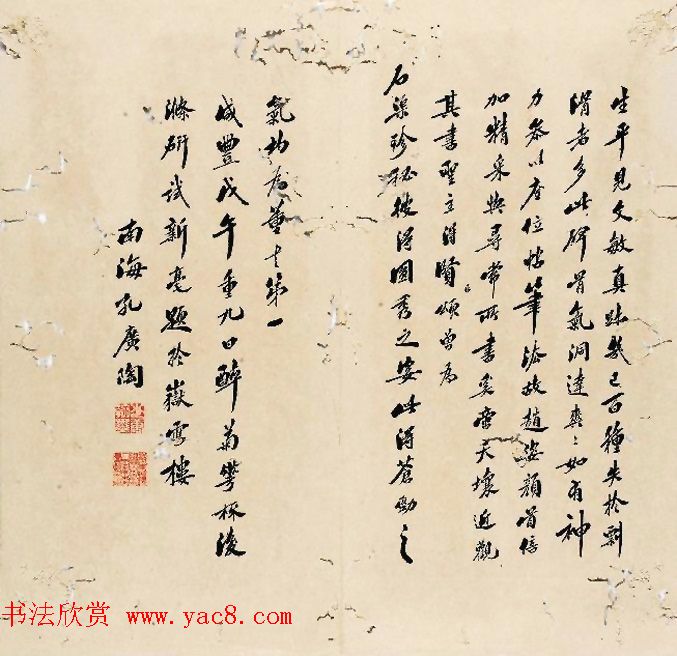 生平見文敏真跡幾已百種失於剽
滑者多此碑骨氣洞達爽爽如有神
力參以座位帖筆法故趙姿顏骨倍
加精采與尋常所書奚啻天壤近觀
其書聖主得賢頌曾為
石渠珍秘彼得圓秀之姿此得蒼勁之
氣均為藝丈第一
咸豐戊午重九日醉菊
滌研試新毫題於嶽雪樓
南海孔廣陶
书法欣赏 www.yac8.com